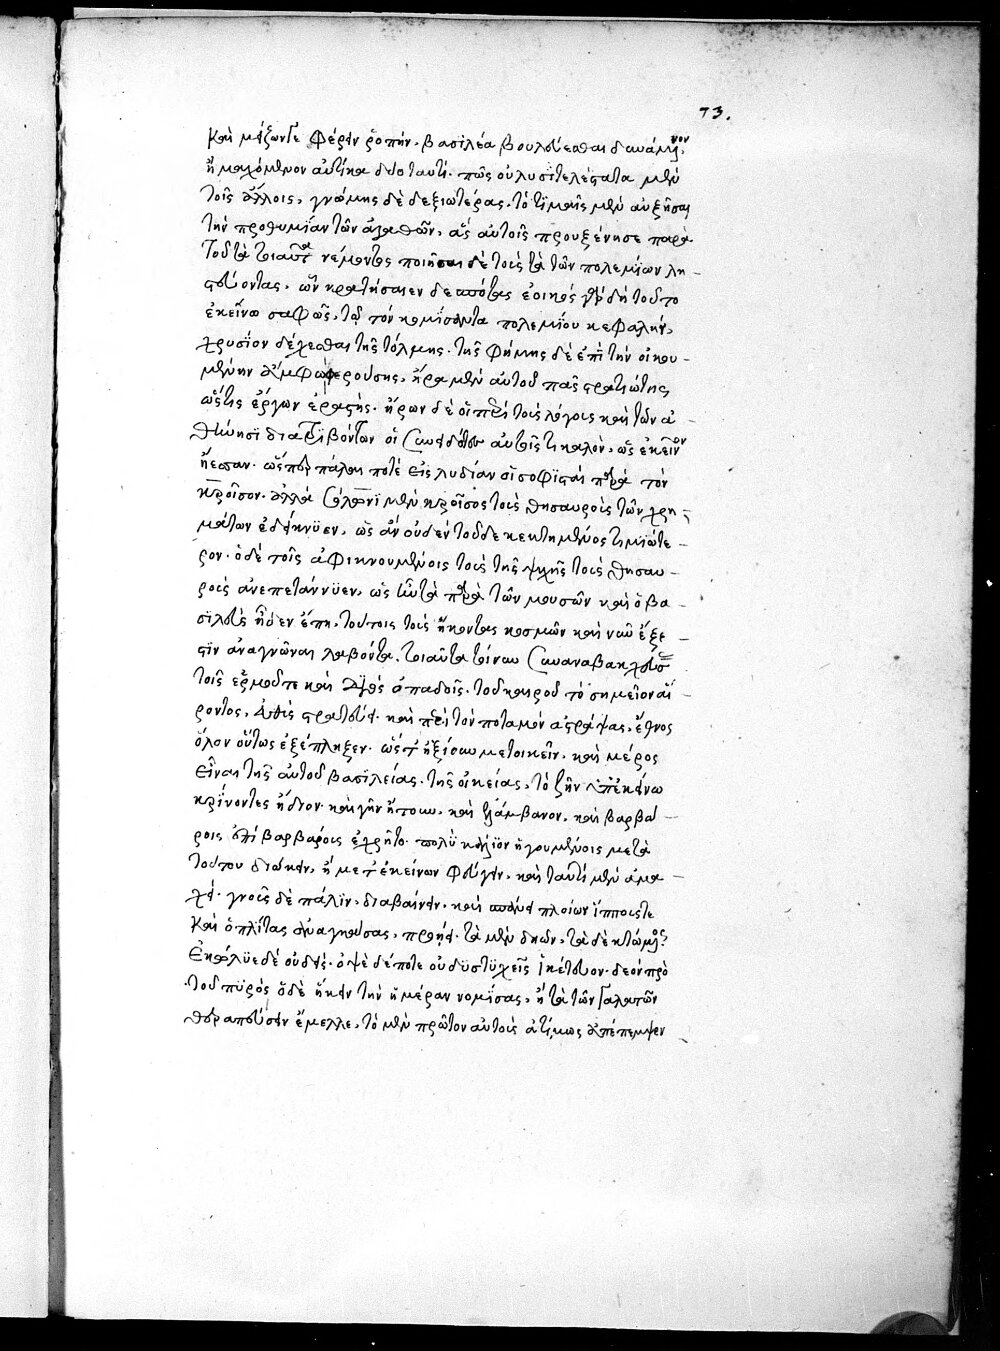 73.
καὶ μείζων τε φέρειν ῥοπήν. βασιλέα βουλεύεσθαι δυνάμενον
ἢ μαχόμενον αὐτίκα δύο ταυτί. πῶς οὐ λυσιτελέστατα μὲν
τοῖς ἄλλοις, γνώμης δὲ δεξιωτέρας. τὸ τιμαῖς μὲν αὐξῆσαι
τὴν προθυμίαν τῶν ἀγαθῶν, ἃς αὐτοῖς προυξένησε παρὰ
τοῦ τὰ τοιαῦτα νέμοντος ποιῆσαι δὲ τοὺς τὰ τῶν πολεμίων λη-
στεύοντας. ὧν κρατήσαιεν δεσπότας ἐοικὸς γὰρ δὴ τοῦτο
ἐκείνῳ σαφῶς, τῷ τὸν κομίσοντα πολεμίου κεφαλήν,
χρυσίον δέχεσθαι τῆς τόλμης. τῆς φήμης δὲ ἐπὶ τὴν οἰκου-
μένην φερούσης, ἤρα μὲν αὐτοῦ πᾶς στρατιώτης
ὥστις ἔργων ἐραστής. ἤρων δὲ οἱ περὶ τοὺς λόγους καὶ τῶν ἀ-
θήνησι διατριβόντων οἱ αὐτοῖς τι καλόν, ὡς ἐκεῖνον
ᾔεσαν. ὥσπερ πάλαι ποτὲ εἰς λυδίαν οἱ σοφισταὶ παρὰ τὸν
κροῖσον. ἀλλὰ σόλωνι μὲν κροῖσος τοὺς θησαυροὺς τῶν χρη-
μάτων ἐδείκνυεν, ὡς ἂν οὐδὲν τοῦδε κεκτημένος τιμιώτε-
ρον. ὁ δὲ τοῖς ἀφικνουμένοις τοὺς τῆς ψυχῆς τοὺς θησαυ-
ροὺς ἀνεπετάννυεν, ὡς παρὰ τῶν μουσῶν καὶ ὁ βα-
σιλεὺς ᾖδεν ἔπη, τούτοις τοὺς ἥκοντας κοσμῶν καὶ νῦν ἔξε-
στιν ἀναγνῶναι λαβόντα. τοιαῦτα
τοῖς ἑρμοῦ τε καὶ διὸς ὀπαδοῖς. τοῦ καιροῦ τὸ σημεῖον αἴ-
ροντος, εὐθὺς στρατεύει. καὶ περὶ τὸν ποταμὸν ἀστράψας, ἔθνος
ὅλον οὕτως ἐξέπληξεν. ὥστ' ἠξίουν μετοικεῖν, καὶ μέρος
εἶναι τῆς αὐτοῦ βασιλείας. τῆς οἰκείας, τὸ ζῆν ὑπ' ἐκείνω
κρίνοντες ἥδιον. καὶ γῆν ᾔτουν. καὶ ἐλάμβανον. καὶ βαρβά-
ροις ἐπὶ βαρβάρους ἐχρῆτο. πολὺ κάλλιον ἡγουμένοις μετὰ
τούτου διώκειν, ἢ μετ' ἐκείνων φεύγειν. καὶ ταυτὶ μὲν ἀμα-
χεί. γνοὺς δὲ πάλιν, διαβαίνειν. καὶ πλοίων ἵππους τε
καὶ ὁπλίτας, προῄει. τὰ μὲν δῃῶν, τὰ δὲ κτώμενος
ἐκώλυε δὲ οὐδείς. ὀψὲ δέ ποτε οἱ δυστυχεῖς ἱκέτευον. δέον πρὸ
τοῦ πυρὸς ὁ δὲ ἥκειν τὴν ἡμέραν νομίσας, ἢ τὰ τῶν γαλατῶν
θεραπεύσειν ἔμελλε, τὸ μὲν πρῶτον αὐτοὺς ἀτίμως ἀπέπεμψεν